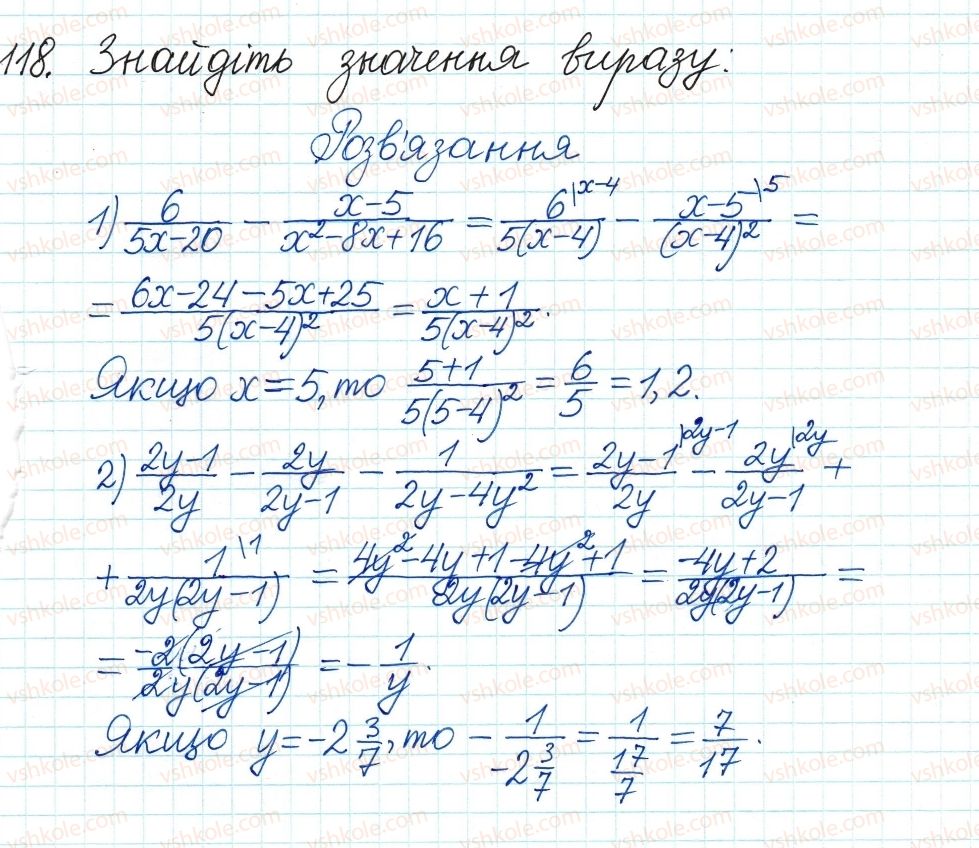 118. Знайдіть значення виразу:
Розв'язання
1) 6/(5x-20) - (x-5)/(x²-8x+16) = 6^{\x-4}/(5(x-4)) - (x-5)^{\5}/(x-4)² =
= (6x-24-5x+25)/(5(x-4)²) = (x+1)/(5(x-4)²).
Якщо x=5, то (5+1)/(5(5-4)²) = 6/5 = 1,2.
2) (2y-1)/(2y) - 2y/(2y-1) - 1/(2y-4y²) = (2y-1)^{\2y-1}/(2y) - 2y^{\2y}/(2y-1) +
+ 1^{\1}/(2y(2y-1)) = (4y²-4y+1-4y²+1)/(2y(2y-1)) = (-4y+2)/(2y(2y-1)) =
= (-2(2y-1))/(2y(2y-1)) = -1/y.
Якщо y=-2 3/7, то -1/(-2 3/7) = 1/(17/7) = 7/17.
vshkole.com